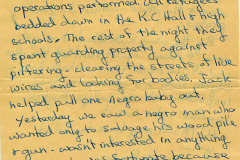 operations performed. All refugees
bedded down in the K.C Hall & high
schools. The rest of the night they
spent guarding property against
pilfering - clearing the streets of live
wires and looking for bodies. Jack
helped pull one negro baby out.
Yesterday we saw a negro man who
wanted only to salvage his wood pile
& gun - wasn't interested in anything
fortunate because